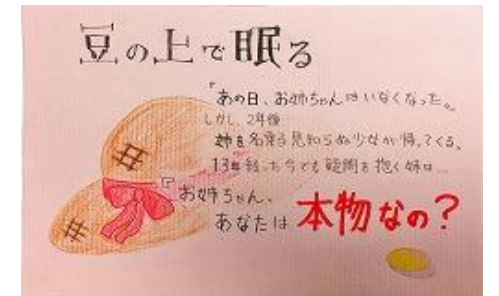 豆の上で眠る
「あの日、お姉ちゃんはいなくなった。
しかし、2年後
姉を名乗る見知らぬ少女が帰ってくる。
13年経った今でも疑問を抱く妹は…
「お姉ちゃん、
あなたは本物なの?